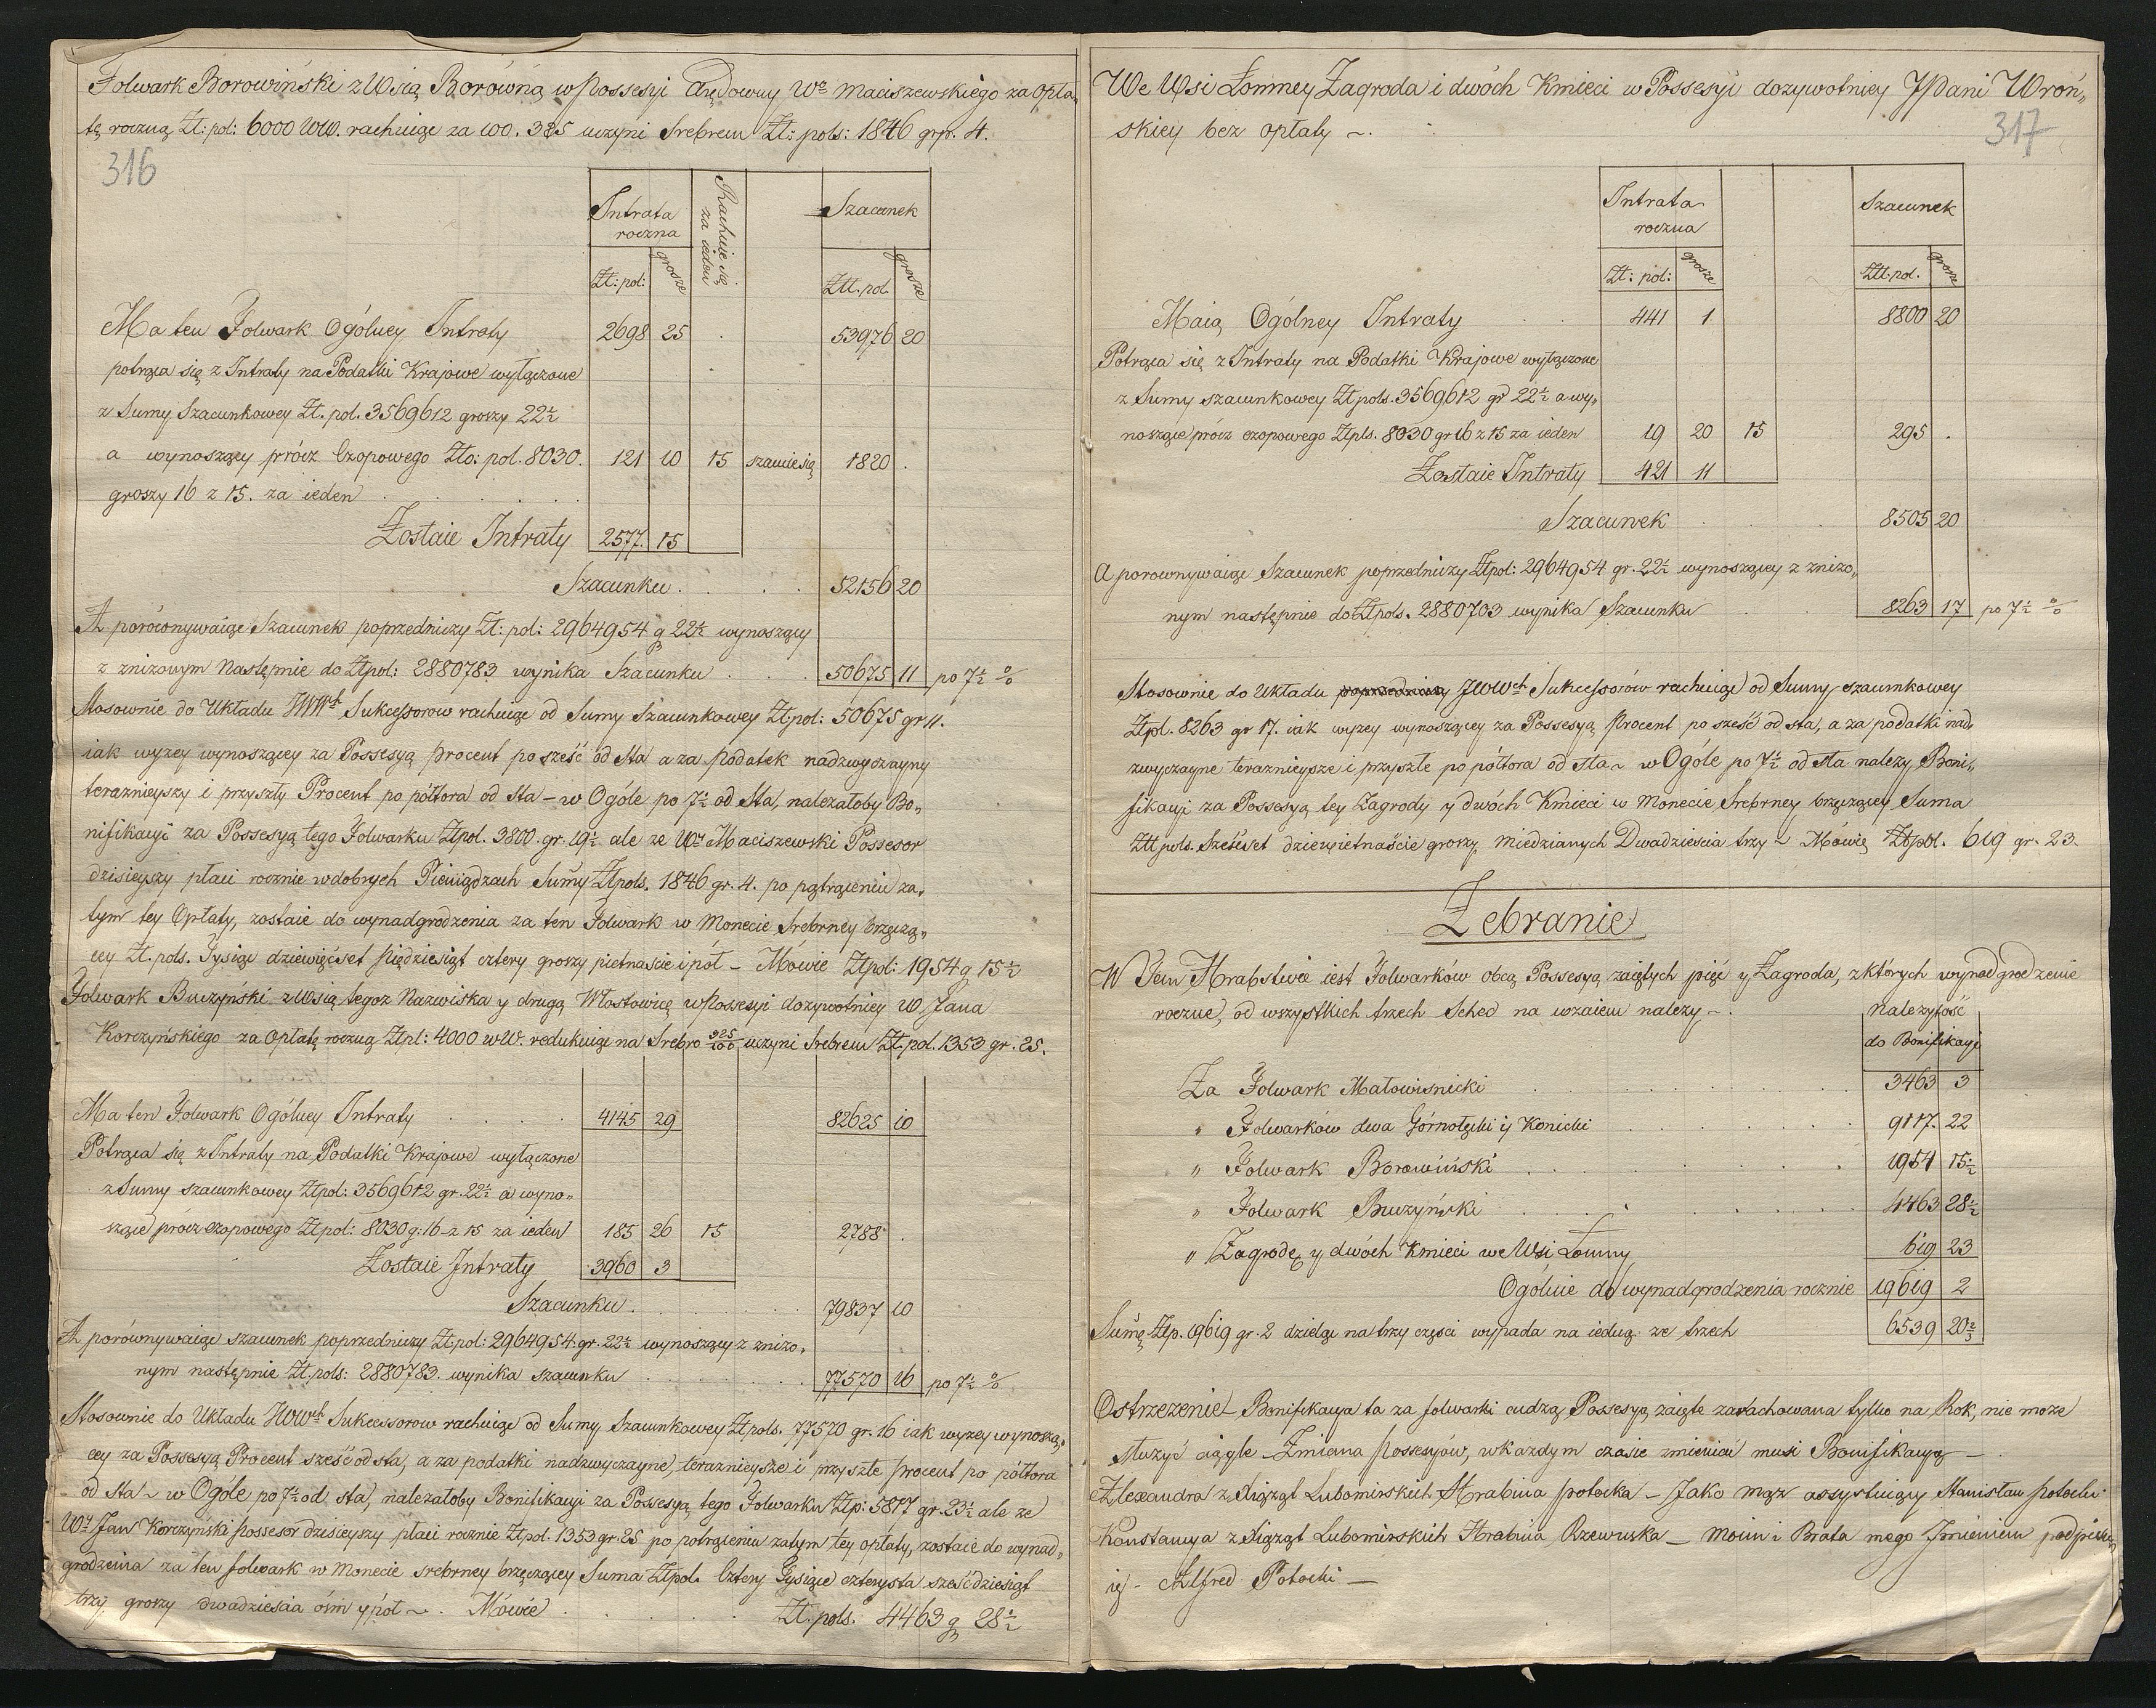 Folwark Borowiński z Wsią Borówną w Possesyi Arędowny Wo Maciszewskiego za opła„
tę roczną Zł: pol: 6000 WW. rachuiąc za 100. 325 uczyni Srebrem Zł: pols: 1846 grp. 4.
316
Intrata roczna
Rachuie się za ieden
Szacunek
Zł: pol: grosze
Złł. pol. grosze
Ma ten Folwark Ogólney Intraty 2698 25 53976 20
potrąca się z Intraty na Podatki Krajowe wyłączone
z Sumy Szacunkowey Zł. pol. 3569612 groszy 22½
a wynoszący prócz Czopowego Złó: pol. 8030. 121 10 15 szacuie się 1820 .
groszy 16 z 15. za ieden
Zostaie Intraty 2577. 15
Szacunku 52156 20
A porównywaiąc Szacunek poprzedniczy Zł: pol: 2964954 g 22½ wynoszący
z zniżonym Następnie do Złpol: 2880783 wynika Szacunku 50675 11 po 7½ %
Stosownie do Układu JWWch Sukcessorow rachuiąc od Sumy Szacunkowey Złpol: 50675 gr 11.
iak wyzey wynoszącey za Possesyą procent po sześć od sta a za podatek nadzwyczayny
teraznieyszy i przyszły Procent po półtora od Sta – w Ogóle po 7½ od Sta, nalezałoby Bo„
nifikacyi za Possesyą tego Folwarku Złpol. 3800. gr. 19½ ale ze Wny Maciszewski Possesor
dzisieyszy płaci rocznie w dobrych Pieniądzach Sum̃y Złpols. 1846 gr. 4. po potrąceniu za„
tym tey Opłaty, zostaie do wynadgrodzenia za ten Folwark w Monecie Srebrney brzęczą„
cey Zł. pols. Tysiąc dziewięćset pięćdziesiąt cztery groszy pietnascie i pół – Mówie Złpol: 1954 g 15½
Folwark Buczyński z Wsią tegoz Nazwiska y drugą Włostowicę w Possesyi dozywotniey W Jana
Korczyńskiego za Opłatę roczną Złpl: 4000 w W. redukuiąc na Srebro 325/100 uczyni Srebrem Zł. pol. 1353 gr. 25.
Ma ten Folwark Ogólney Intraty 4145 29 82625 10
Potrąca się z Intraty na Podatki Krajowe wyłączone
z Sumy szacunkowey Złpol: 3569612 gr. 22½ a wyno„
szące prócz czopowego Złpol: 8030 g: 16 z 15 za ieden 185 26 15 2788 .
Zostaie Intraty 3960 3
Szacunku 79837 10
A porównywaiąc szacunek poprzedniczy Zł: pol: 2964954. gr. 22½ wynoszący z znizo„
nym następnie Zł. pols: 2880783. wynika szacunku 77570 16 po 7½ %
Stosownie do Układu JWWch Sukcessorow rachuiąc od Sumy Szacunkowey Złpols. 77570 gr. 16 iak wyzey wynoszą„
cey za Possesyą Procent sześć od sta, a za podatki nadzwyczayne, teraznieysze i przyszłe procent po półtora
od Sta ~ w Ogóle po 7½ od sta, nalezałoby Bonifikacyi za Possesyą tego Folwarku Złp: 5817 gr. 23½ ale ze
Wny Jan Korczyński possesor dzisieyszy płaci rocznie Złpol. 1353 gr. 25 po potrąceniu zatym tey opłaty, zostaie do wynad„
grodzenia za ten folwark w Monecie srebrney brzęczący Suma Złpol. Cztery Tysiące czterysta sześćdziesiąt
trzy groszy dwadziescia ośm y pół ~. Mówie Zł. pols. 4463 g 28½
We Wsi Łomney Zagroda i dwóch Kmieci w Possesyi dozywotniey JPani Wroń„
skiey bez opłaty ~.
317
Intrata roczna
Szacunek
Zł: pol: grosze
Złł. pol. grosze
Maią Ogólney Intraty 441 1 8800 20
Potrąca się z Intraty na Podatki Krajowe wyłączone
z Sumy szacunkowey Złpols. 3569612 gr 22½ a wy„
noszące prócz czopowego Złpls. 8030 gr 16 z 15 za ieden 19 20 15 295 .
Zostaie Intraty 421 11
Szacunek 8505 20
A porownywaiąc Szacunek poprzedniczy Złpol: 2964954 gr. 22½ wynoszący z znizo„
nym następnie do Złpols. 2880703 wynika Szacunku 8263 17 po 7½ %
Stosownie do Układu poprzedniczy JWWch Sukcessorów rachuiąc od Sumy szacunkowey
Złpl. 8263 gr 17. iak wyzey wynoszącey za Possesyą procent po sześć od sta, a za podatki nad„
zwyczayne teraznieysze i przyszłe po półtora od sta ~ w Ogóle po 7½ od sta nalezy Boni„
fikacyi za Possesyą tey Zagrody y dwóch Kmieci w Monecie Srebrney brzęczącey Suma
Złł pols. Sześćset dziewiętnaście groszy miedzianych Dwadziescia trzy ~ Mówię Złpol. 619 gr. 23.
Zebranie
W Tem Hrabstwie iest Folwarków obcą Possesyą zaiętych pięć y Zagroda, z których wynadgrodzenie
roczne, od wszystkich trzech Sched na wzaiem nalezy ~.
Nalezytość
do Bonifikacyi
Za Folwark Małowisnicki 3463 3
„ Folwarków dwa Górnołęki y Konicki 9117. 22
„ Folwark Borowiński 1954 15½
„ Folwark Buczyński 4463 28½
„ Zagrodę y dwóch Kmieci we Wsi Łomny 619 23
Ogólnie do wynadgrodzenia rocznie 19619 2
Sum̃ę Złp. 19619 gr. 2 dzieląc na trzy części wypada na iedną ze trzech 6539 20⅔
Ostrzezenie – Bonifikacya ta za folwarki cudzą Possesyą zaięte zarachowana tylko na Rok, nie moze
słuzyć ciągle – Zmiana possesyów, w kazdym czasie zmieniać musi Bonifikacyą –
Alexandra z Xiążąt Lubomirskich Hrabina potocka – Jako mąz assystuiący Stanisław potocki
Konstancya z Xiążąt Lubomirskich Hrabina Rzewuska – Moim i Brata mego Imieniem podpisuię
ię – Alfred Potocki –